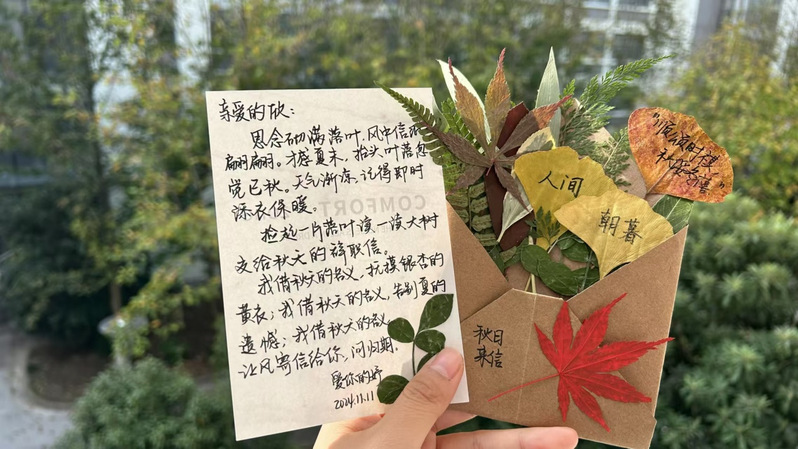 亲爱的
思念砌满落叶，风中信
翩翩翩。才感夏末，抬头叶落忽
觉已秋。天气渐凉，记得即时
添衣保暖。
捡起一片落叶读一读大树
交给秋天的辞职信。
我借秋天的名义，抚摸银杏的
黄衣；我借秋天的名义，告别夏的
遗憾；我借秋天的名
让风寄信给你，问归期。
爱你的
2024.11.11
COMFORT
人间
朝暮
秋日
来信